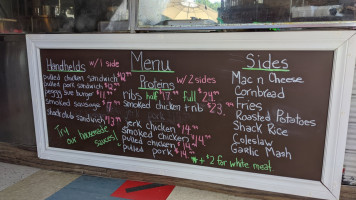 Handhelds w/ 1 side
pulled chicken sandwich
pulled pork sandwich
veggie burger
smoked sausage
shack club sandwich
Try our homemade sauces!
Menu
Proteins w/ 2 sides
ribs half full
smoked chicken + rib
jerk chicken $14
smoked chicken $14
pulled chicken $14
pulled pork $14
* + $2 for white meat
Sides
Mac n Cheese
Cornbread
Fries
Roasted Potatoes
Shack Rice
Coleslaw
Garlic Mash